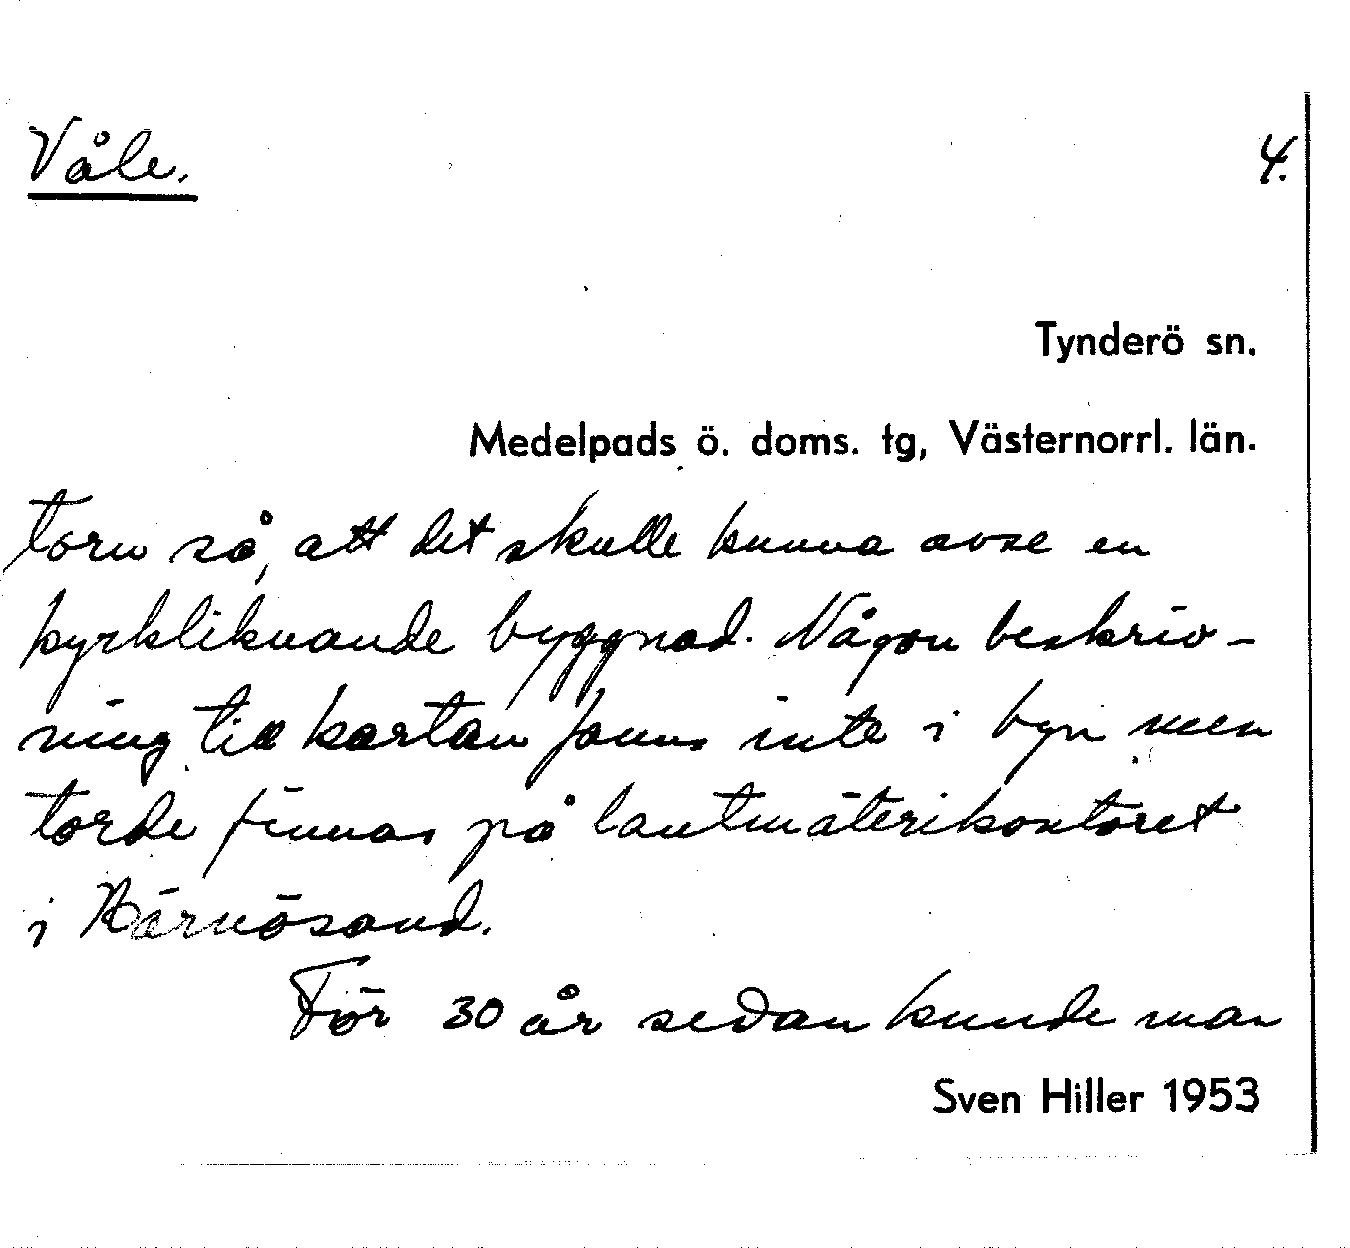 Våle.
4.
Tynderö sn.
Medelpads ö. doms. tg, Västernorrl. län.
torn så, att det skulle kunna avse en
kyrkliknande byggnad. Någon beskriv-
ning till kartan fanns inte i byn men
torde finnas på lantmäterikontoret
i Härnösand.
För 30 år sedan kunde man
Sven Hiller 1953